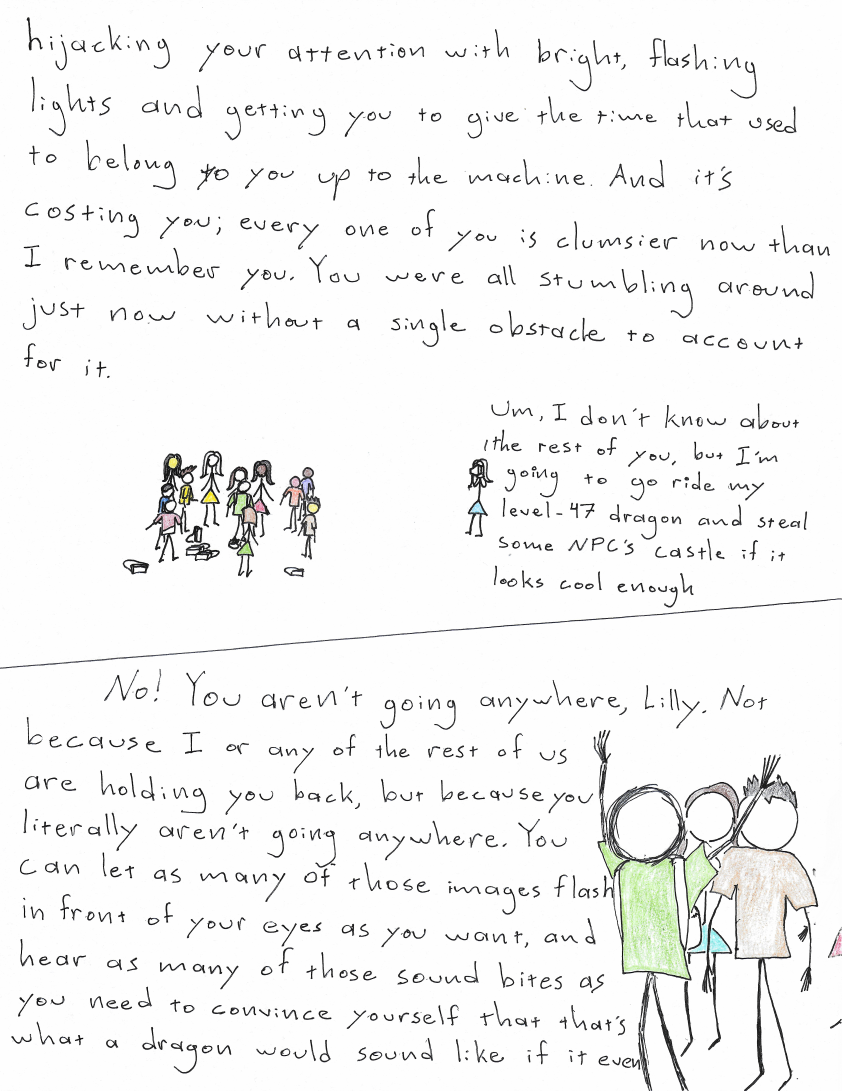 hijacking your attention with bright, flashing
lights and getting you to give the time that used
to belong to you up to the machine. And it's
costing you; every one of you is clumsier now than
I remember you. You were all stumbling around
just now without a single obstacle to account
for it.
Um, I don't know about
the rest of you, but I'm
going to go ride my
level-47 dragon and steal
some NPC's castle if it
looks cool enough
No! You aren't going anywhere, Lilly. Not
because I or any of the rest of us
are holding you back, but because you
literally aren't going anywhere. You
can let as many of those images flash
in front of your eyes as you want, and
hear as many of those sound bites as
you need to convince yourself that that's
what a dragon would sound like if it even